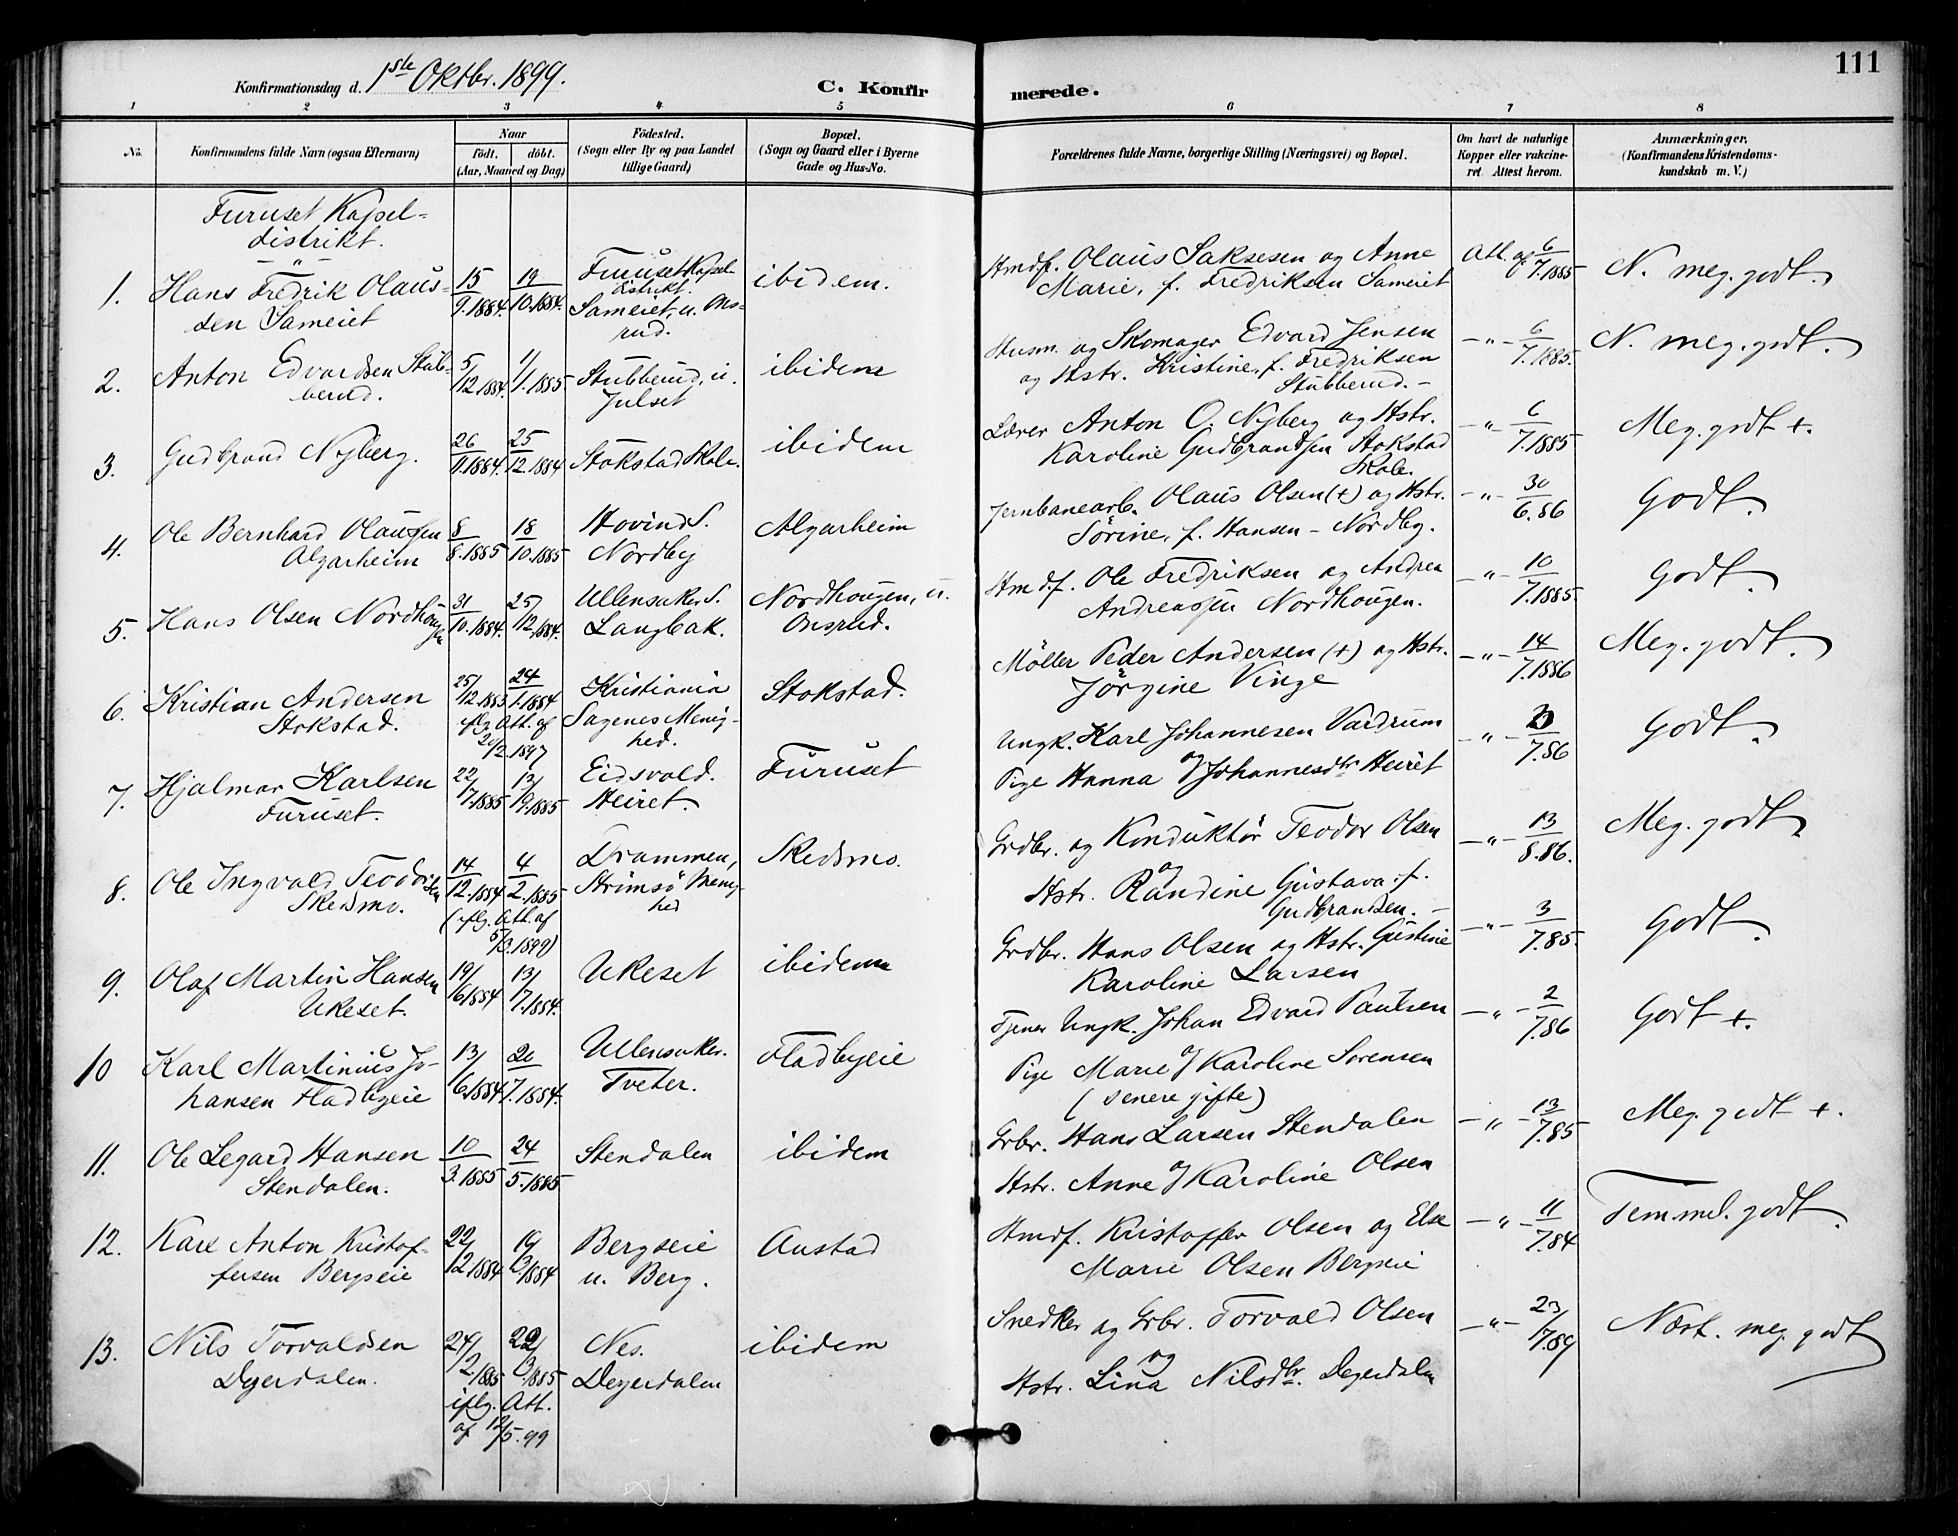 111
Konfirmationsdag d. 1ste Oktbr. 1899.
C. Konfirmerede.
1 2 3 4 5 6 7 8
No.
Konfirmandens fulde Navn (ogsaa Efternavn)
Naar
födt. döbt.
(Aar, Maaned og Dag)
Födested.
(Sogn eller By og paa Landet
tillige Gaard)
Bopæl.
(Sogn og Gaard eller i Byerne
Gade og Hus-No.
Forældrenes fulde Navne, borgerlige Stilling (Næringsvei) og Bopæl.
Om havt de naturlige
Kopper eller vakcine-
ret. Attest herom.
Anmærkninger,
(Konfirmandens Kristendoms-
kundskab m. V.)
Furuset Kapel-
distrikt.
1. Hans Fredrik Olaus-
sen Sameiet
15/9.1884. 19/10.1884.
Furuset Kapel
distrikt.
Sameiet, u. Ons-
rud.
ibidem.
Hmdf. Olaus Saksesen og Anne
Marie, f. Fredriksen Sameiet
Att. af 6/7.1885
N. meg. godt.
2. Anton Edvardsen Stub-
berud.
5/12.1884. 1/1.1885
Stubberud, u.
Julset
ibidem
Husm. og Skomager Edvard Jensen
og Hstr. Kristine, f. Fredriksen
Stubberud. -
-"- 6/7.1885.
N. meg. godt.
3. Gudbrand Nyberg.
26/11.1884. 25/12.1884
Stokstad Skole.
ibidem
Lærer Anton O. Nyberg og Hstr.
Karoline Gudbrandsen Stokstad
Skole.
-"- 6/7.1885
Meg. godt +.
4. Ole Bernhard Olaussen
Algarheim
8/8.1885 18/10.1885
Hovind S.
Nordby
Algarheim
Jernbanearb. Olaus Olsen (+) og Hstr.
Sörine, f. Hansen - Nordby.
-"- 30/6.86
Godt.
5. Hans Olsen Nordhougen
31/10.1884. 25/12.1884.
Ullensaker S.
Langbak.
Nordhougen, u.
Onsrud.
Hmdf. Ole Fredriksen og Andrea
Andreassen Nordhougen.
-"- 10/7.1885.
Godt.
6. Kristian Andersen
Stokstad.
25/12.1883 24/1.1884
iflg. Att. af
20/2.1897
Kristiania
Sagenes Menig-
hed.
Stokstad.
Möller Peder Andersen (+) og Hstr.
Jörgine Vinge
-"- 14/7.1886
Meg. godt.
7. Hjalmar Karlsen
Furuset.
22/7.1885 13/9.1885
Eidsvold.
Heiret.
Furuset
Ungk. Karl Johannesen Vardrum
og
Pige Hanna Johannesdtr Heiret
-"- /7.86
Godt.
8. Ole Ingvald Teodorsen
Skedsmo.
14/12.1884 4/2.1885
(iflg. Att. af
5/3.1899)
Drammen,
Strömsö Menig-
hed
Skedsmo.
Grdbr. og Konduktör Teodor Olsen
og
Hstr. Randine Gustava, f.
Gudbrandsen. -
-"- 13/8.86.
Meg. godt.
9. Olaf Martin Hansen
Ukeset.
19/6.1884 13/7.1884.
Ukeset
ibidem
Grdbr. Hans Olsen og Hstr. Gustine
Karoline Larsen
-"- 3/7.85.
Godt.
10 Karl Martinius Jo-
hansen Fladbyeie
13/6.1884 20/7.1884.
Ullensaker.
Tveter.
Fladbyeie
Tjener Ungk. Johan Edvard Paulsen
og
Pige Marie Karoline Sorensen
(senere gifte)
-"- 2/7.86
Godt +.
11. Ole Legard Hansen
Stendalen.
10/3.1885 24/5.1885
Stendalen
ibidem
Grbr. Hans Larsen Stendalen
og
Hstr. Anne Karoline Olsen
-"- 13/7.85
Meg. godt +.
12. Karl Anton Kristof-
fersen Bergseie
22/12.1884 19/3.1884
Bergseie
u. Berg.
Austad
Hmdf. Kristoffer Olsen og Else
Marie Olsen Bergseie
-"- 11/7.84
Temmel. godt.
13. Nils Torvaldsen
Dyerdalen.
24/2.1885 22/3.1885
iflg. Att.
af 12/5.99
Nes.
Deyerdalen
ibidem
Snedker og Grbr. Torvald Olsen
og
Hstr. Lina Nilsdtr. Deyerdalen
-"- 23/7.89
Næst. meg. godt